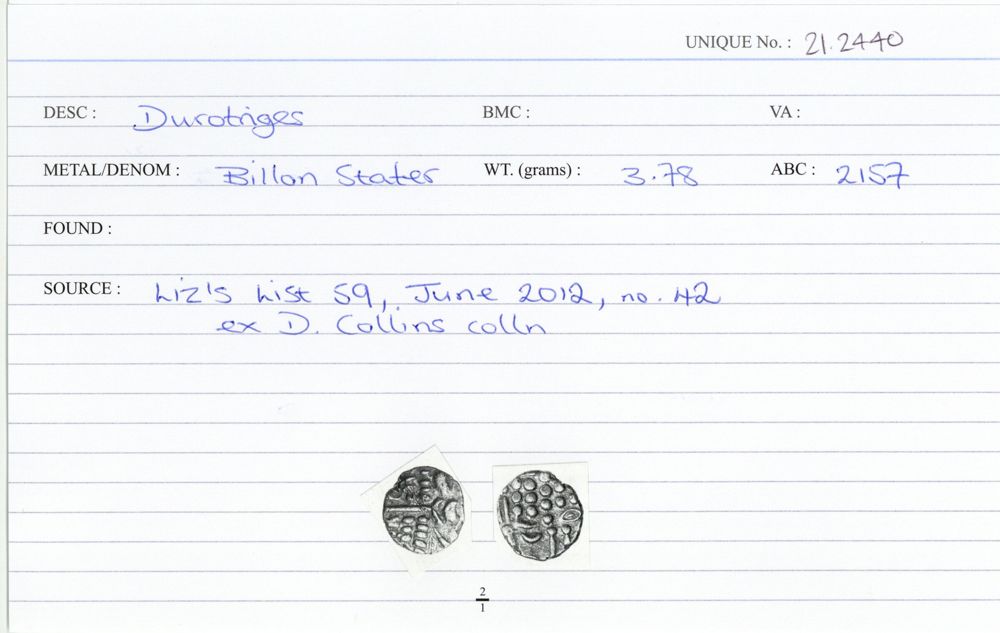 UNIQUE No. : 21.2440
DESC : Durotriges BMC : VA :
METAL/DENOM : Billon Stater WT. (grams) : 3.78 ABC : 2157
FOUND :
SOURCE : Liz's List 59, June 2012, no. 42
ex D. Collins colln
2
1